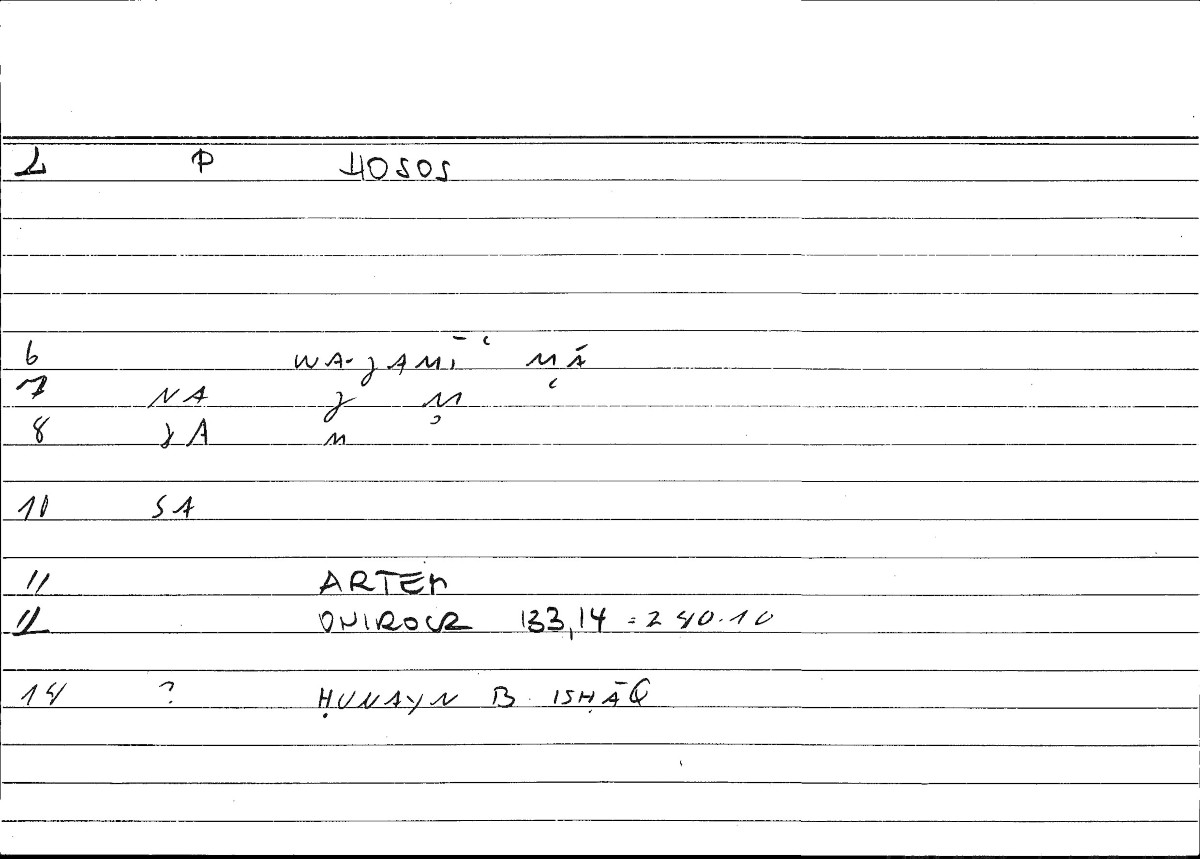 2 P HOSOS
6 WA-ǦAMĪʿ MĀ
7 NA ǧ M
8 ǧA M
10 SA
11 ARTEM
12 ONIROCR 133,14 = 240.10
14 ? ḤUNAYN B. ISḤĀQ